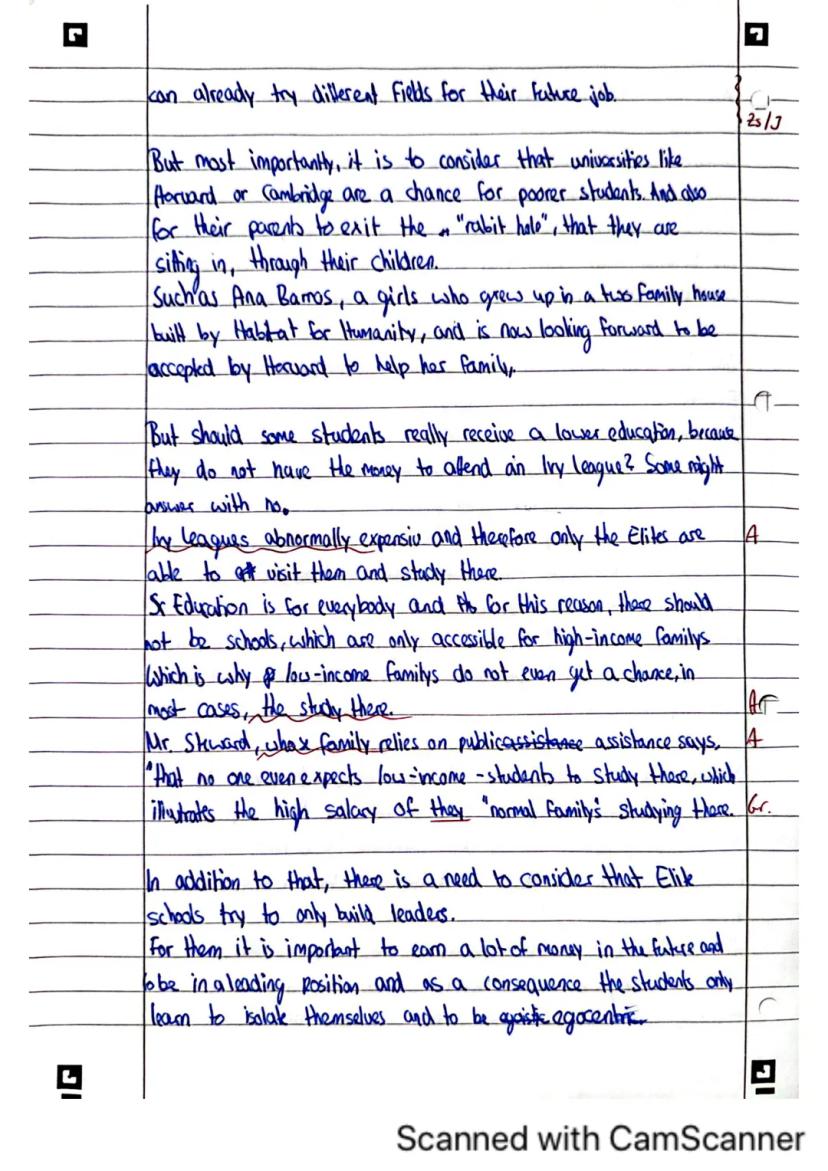 can already try different fields for their future job.
Zs/J
But most importantly, it is to consider that universities like
Harvard or Cambridge are a chance for poorer students. And also
for their parents to exit the "rabit hole", that they are
sitting in, through their children.
Such as Ana Barros, a girls who grew up in a two family house
built by Habitat for Humanity, and is now looking forward to be
accepted by Harvard to help her family.
But should some students really receive a lower education, because
they do not have the money to attend an Ivy league? Some might
answer with no.
Ivy leagues abnormally expensiv and therefore only the Elites are A
able to visit them and study there.
Education is for everybody and for this reason, there should
not be schools, which are only accessible for high-income familys
Which is why low-income familys do not even get a chance, in
most cases, the study there.
Mr. Steward, family relies on public assistance says, A
"that no one even expects low-income-students to study there, which
illustrates the high salary of they "normal family's studying there. Gr.
In addition to that, there is a need to consider that Elite
schools try to only build leaders.
For them it is important to earn a lot of money in the future and
to be in a leading position and as a consequence the students only
learn to isolate themselves and to be egocentric.
Scanned with CamScanner